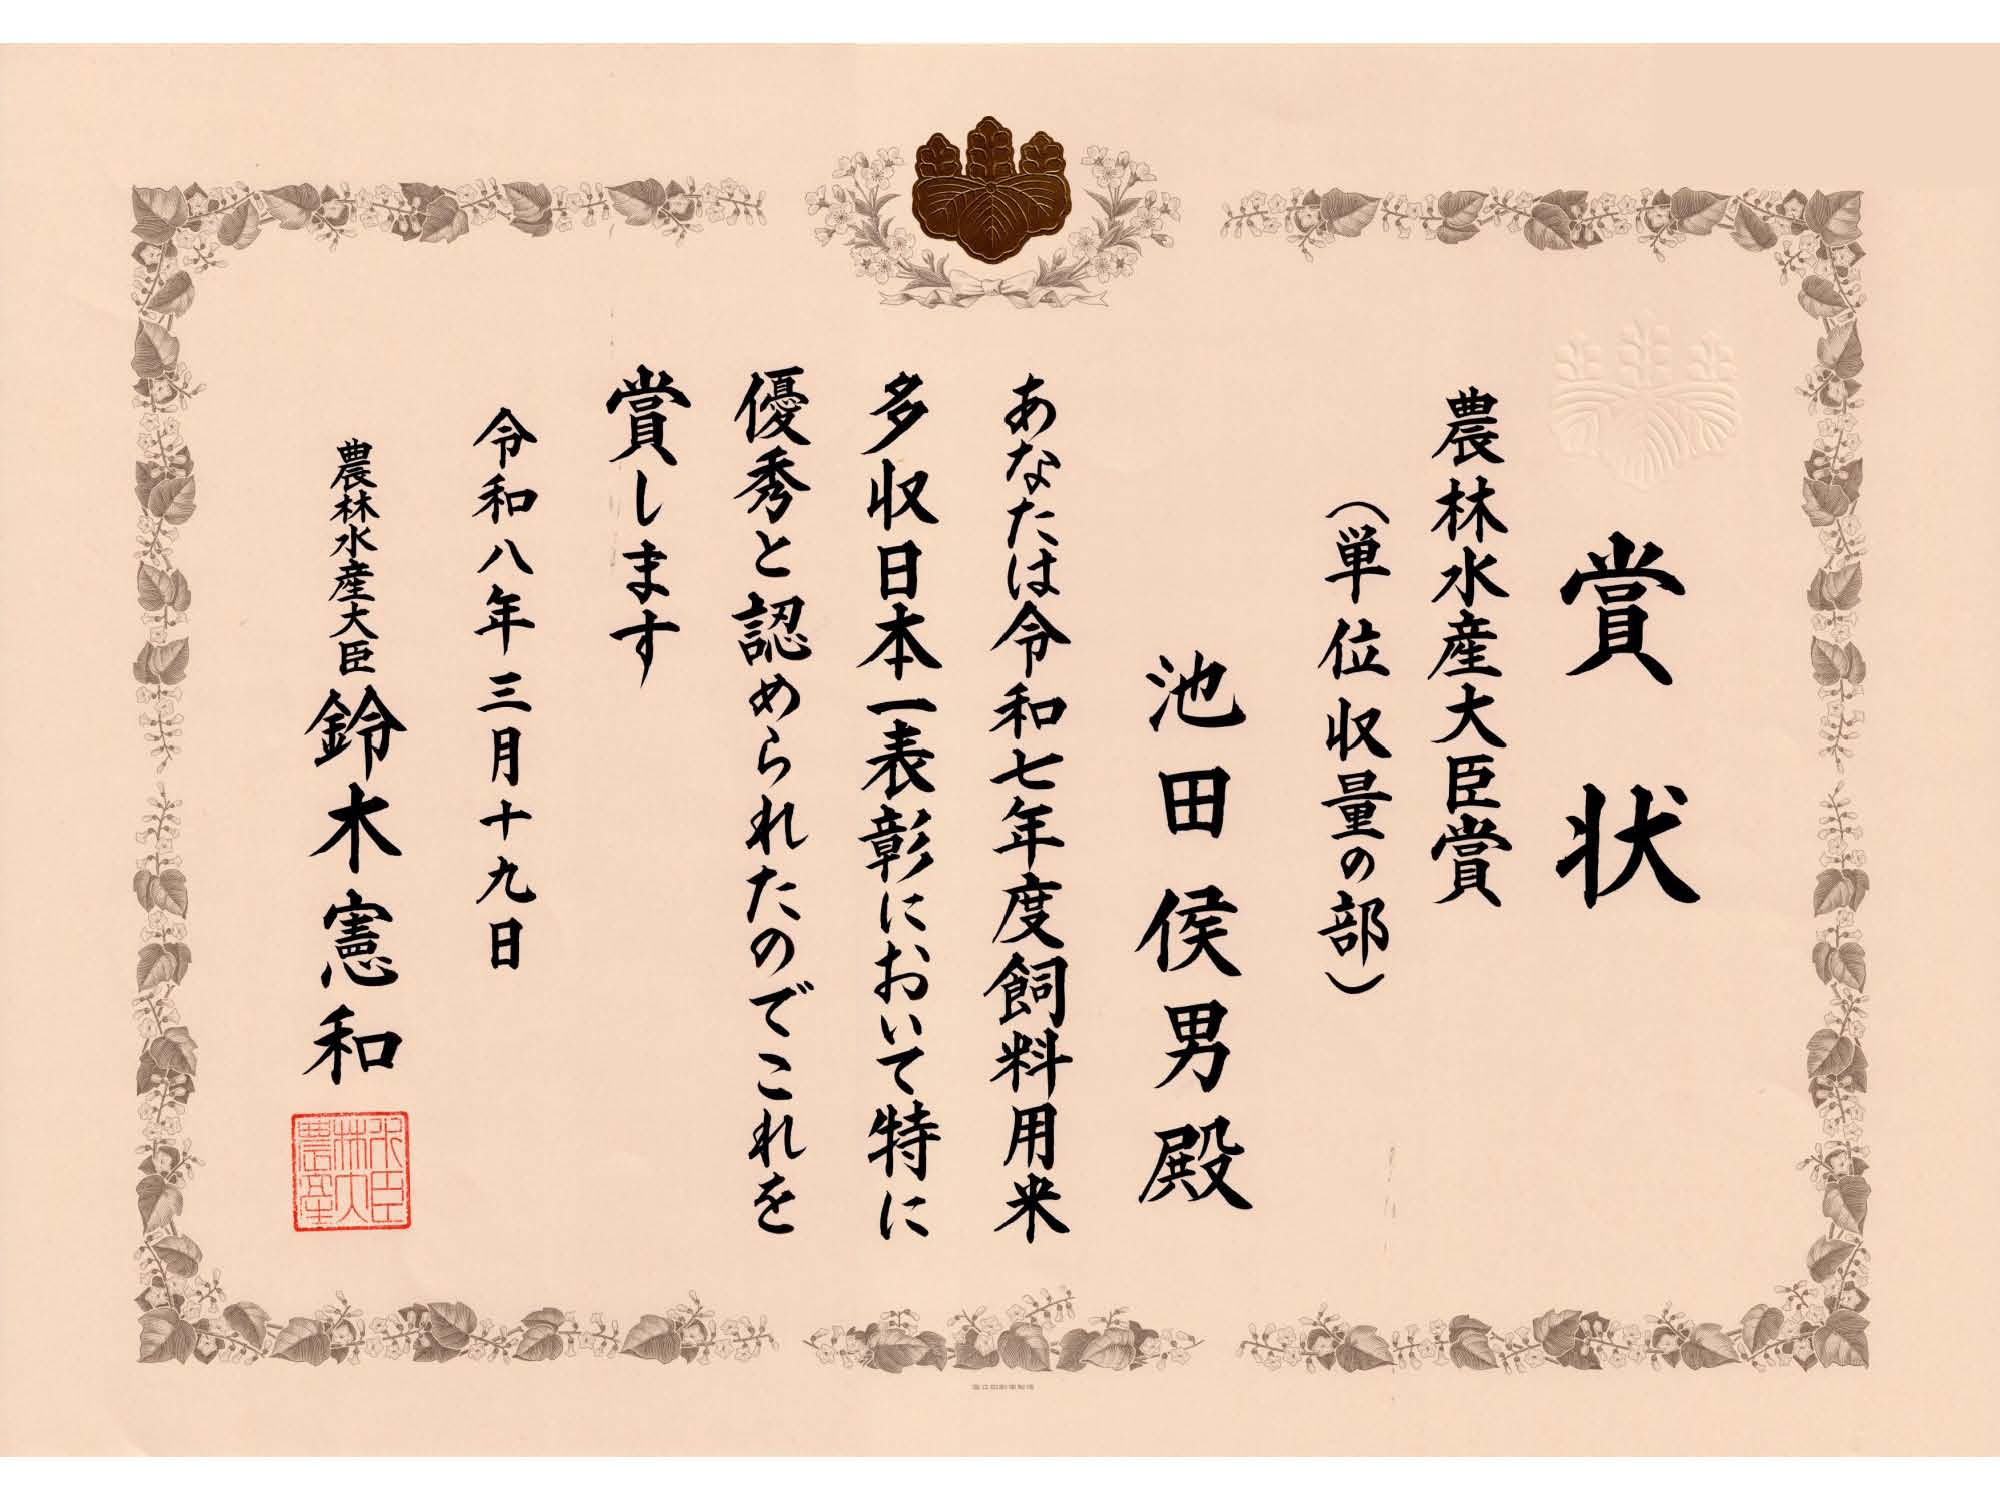 賞状
農林水産大臣賞
(単位収量の部)
池田侯男殿
あなたは令和七年度飼料用米
多収日本一表彰において特に
優秀と認められたのでこれを
賞します
令和八年三月十九日
農林水産大臣 鈴木憲和
農林水産大臣
国立印刷局製造